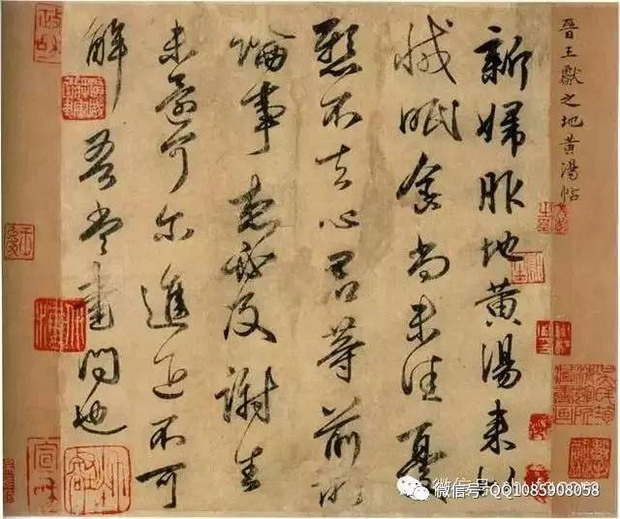 晉王獻之地黃湯帖
新婦服地黃湯來似
減眠食尚未佳憂
懸不去心君等前所
論事想必及謝生
未還何尔進退不可
解吾當書問也
微信号:QQ1085908058